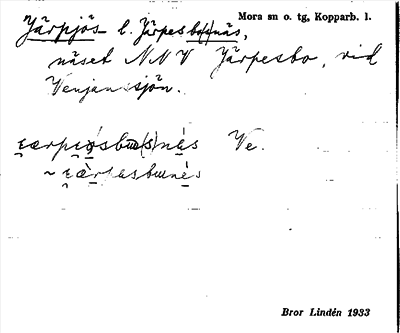 Mora sn o. tg, Kopparb. l.
Järpjös- l. Järpesbo(s)näs,
näset NNV Järpesbo, vid
Venjanssjön.
Ve.
Bror Lindén 1933